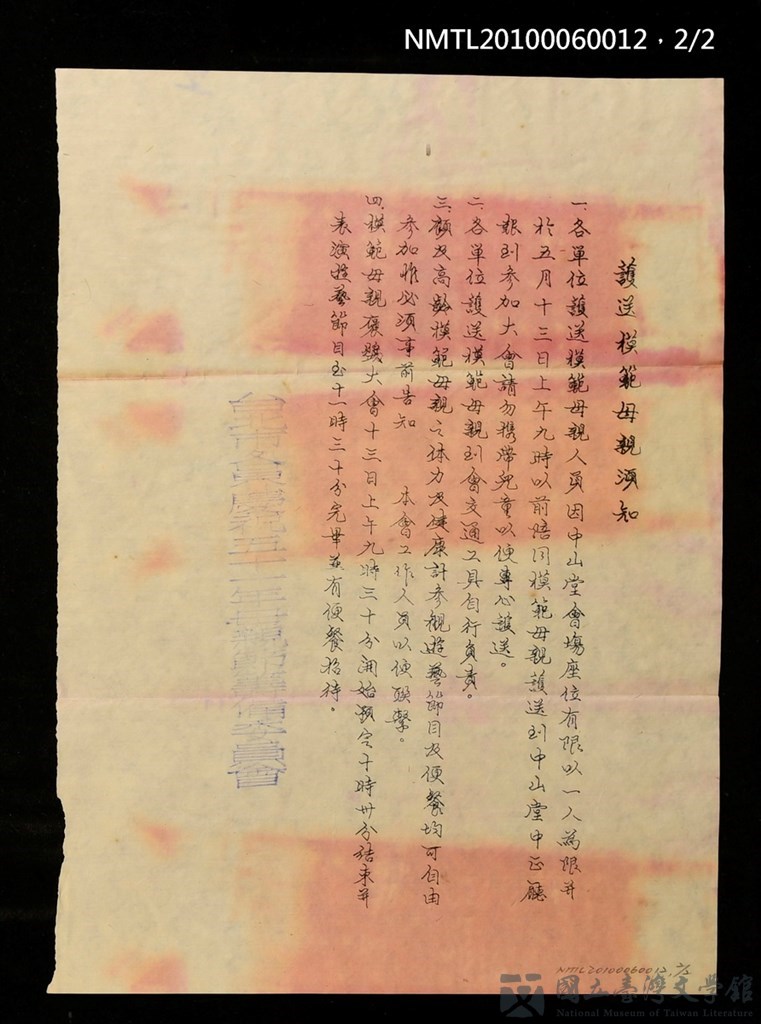 NMTL20100060012，2/2
護送模範母親須知
一、各單位護送模範母親人員因中山堂會場座位有限以一人為限并
於五月十三日上午九時以前陪同模範母親護送到中山堂中正廳
報到參加大會請勿携帶兒童以便專心護送。
二、各單位護送模範母親到會交通工具自行負責。
三、顧及高齡模範母親之体力及健康計參觀遊藝節目及便餐均可自由
參加惟必須事前告知　本會工作人員以便聯繫。
四、模範母親褒獎大會十三日上午九時三十分開始預定十時卅分結束并
表演遊藝節目至十一時三十分完畢並有便餐招待。
台北市各界慶祝五十一年母親節籌備委員會
NMTL20100060012, 2/2
國立臺灣文學館
National Museum of Taiwan Literature